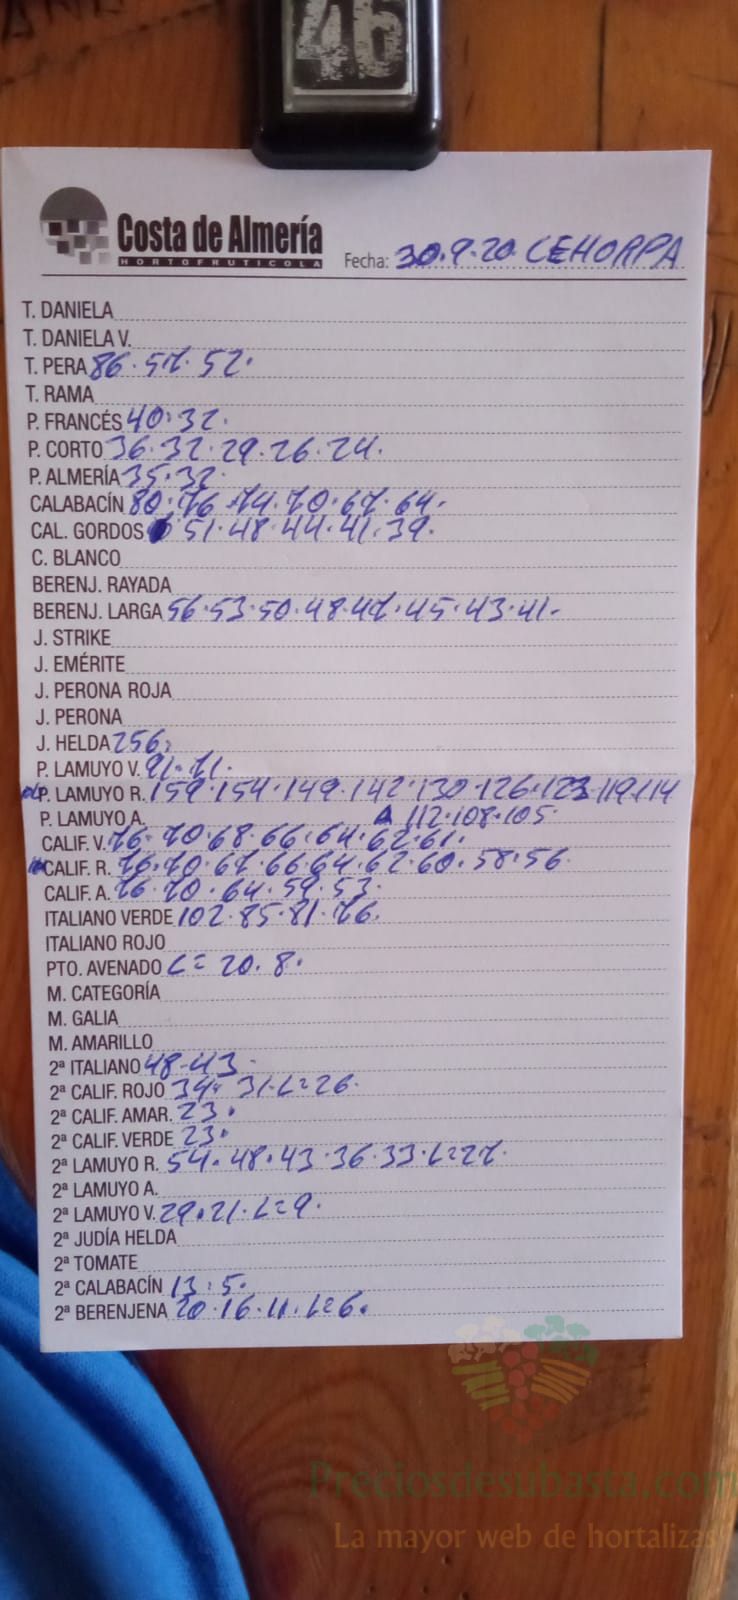 46
Costa de Almería
HORTOFRUTICOLA
Fecha: 30.9.20 CEHORPA
T. DANIELA
T. DANIELA V.
T. PERA 86.57.52.
T. RAMA
P. FRANCÉS 40.32.
P. CORTO 36.32.29.26.24.
P. ALMERÍA 35.32.
CALABACÍN 80.76.74.70.67.64.
CAL. GORDOS 51.48.44.41.39.
C. BLANCO
BERENJ. RAYADA
BERENJ. LARGA 56.53.50.48.47.45.43.41.
J. STRIKE
J. EMÉRITE
J. PERONA ROJA
J. PERONA
J. HELDA 256.
P. LAMUYO V. 91.71.
P. LAMUYO R. 159.154.149.142.130.126.123.119.114
P. LAMUYO A. 112.108.105.
CALIF. V. 76.70.68.66.64.62.61.
CALIF. R. 76.70.67.66.64.62.60.58.56.
CALIF. A. 76.70.64.59.53.
ITALIANO VERDE 102.85.81.76.
ITALIANO ROJO
PTO. AVENADO L=20.8.
M. CATEGORÍA
M. GALIA
M. AMARILLO
2ª ITALIANO 48-43.
2ª CALIF. ROJO 34.31.L=26.
2ª CALIF. AMAR. 23.
2ª CALIF. VERDE 23.
2ª LAMUYO R. 54.48.43.36.33.L=27.
2ª LAMUYO A.
2ª LAMUYO V. 29.21.L=9.
2ª JUDÍA HELDA
2ª TOMATE
2ª CALABACÍN 13.5.
2ª BERENJENA 20.16.11.L=6.
Preciosdesubasta.com
La mayor web de hortalizas